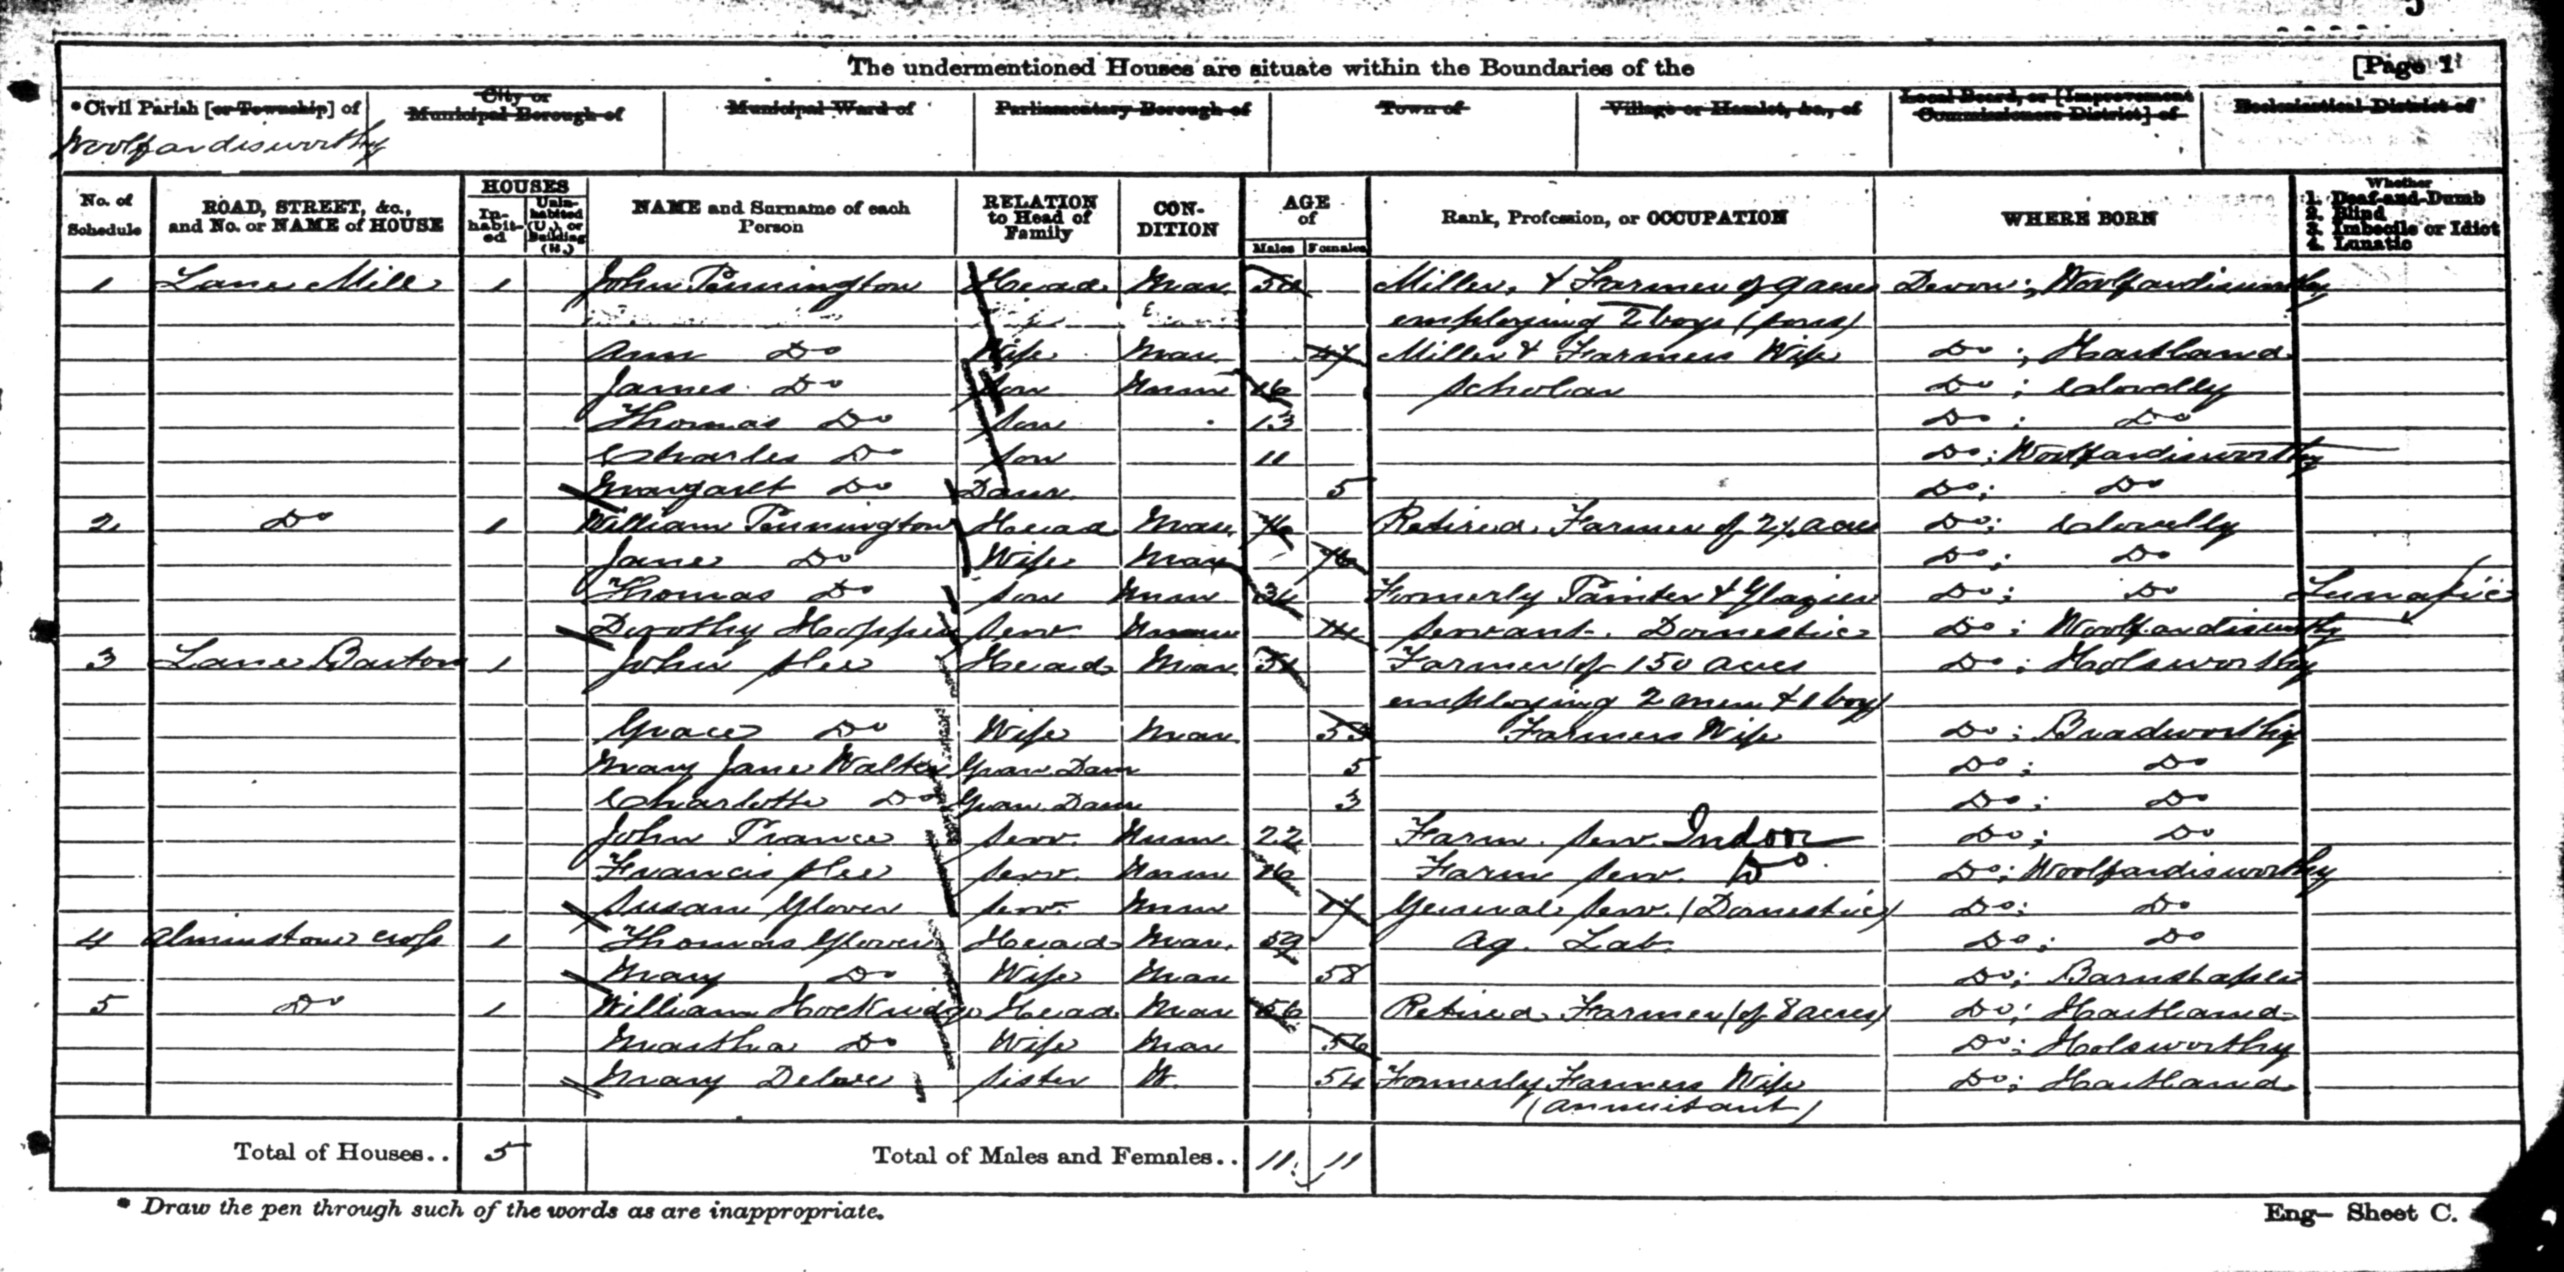 The undermentioned Houses are situate within the Boundaries of the [Page 1
* Civil Parish [or Township] of City or Municipal Borough of Municipal Ward of Parliamentary Borough of Town of Village or Hamlet, &c., of Local Board, or [Improvement Commissioners District] of Ecclesiastical District of
Woolfardisworthy
No. of Schedule ROAD, STREET, &c., and No. or NAME of HOUSE HOUSES In-habit-ed Unin-habited (U.), or Building (B.) NAME and Surname of each Person RELATION to Head of Family CON-DITION AGE of Males Females Rank, Profession, or OCCUPATION WHERE BORN Whether 1. Deaf-and-Dumb 2. Blind 3. Imbecile or Idiot 4. Lunatic
1 Lane Mill 1 John Pennington Head Mar. 54 Miller & Farmer of 9 acres Devon; Woolfardisworthy
employing 2 boys (sons)
Ann Do Wife Mar. 47 Miller & Farmers Wife Do; Hartland
James Do Son Unm 16 Scholar Do; Clovelly
Thomas Do Son 13 Do; Do
Charles Do Son 11 Do; Woolfardisworthy
Margaret Do Daur. 5 Do; Do
2 Do 1 William Pennington Head Mar. 76 Retired Farmer of 24 acres Do; Clovelly
Jane Do Wife Mar 76 Do; Do
Thomas Do Son Unm 34 Formerly Painter & Glazier Do; Do Lunatic
Dorothy Hopper Serv. Unm 14 Servant. Domestic Do; Woolfardisworthy
3 Lane Barton 1 John Slee Head Mar. 51 Farmer (of 150 acres Do; Holsworthy
employing 2 men & 1 boy)
Grace Do Wife Mar. 53 Farmers Wife Do; Bradworthy
Mary Jane Walter Gran Daur 5 Do; Do
Charlotte Do Gran Daur 3 Do; Do
John Prance Serv. Unm. 22 Farm. Serv. Indoor Do; Do
Francis Slee Serv. Unm 16 Farm Serv. Do. Do; Woolfardisworthy
Susan Glover Serv. Unm 17 General Serv. (Domestic) Do; Do
4 Alminstone Cross 1 Thomas Glover Head Mar. 59 Ag. Lab. Do; Do
Mary Do Wife Mar 58 Do; Barnstaple
5 Do 1 William Hockridge Head Mar 56 Retired Farmer (of 8 acres) Do; Hartland
Martha Do Wife Mar 56 Do; Holsworthy
Mary Delove Sister W. 54 Formerly Farmers Wife Do; Hartland
(Annuitant)
Total of Houses.. 5 Total of Males and Females.. 11 11
* Draw the pen through such of the words as are inappropriate. Eng— Sheet C.